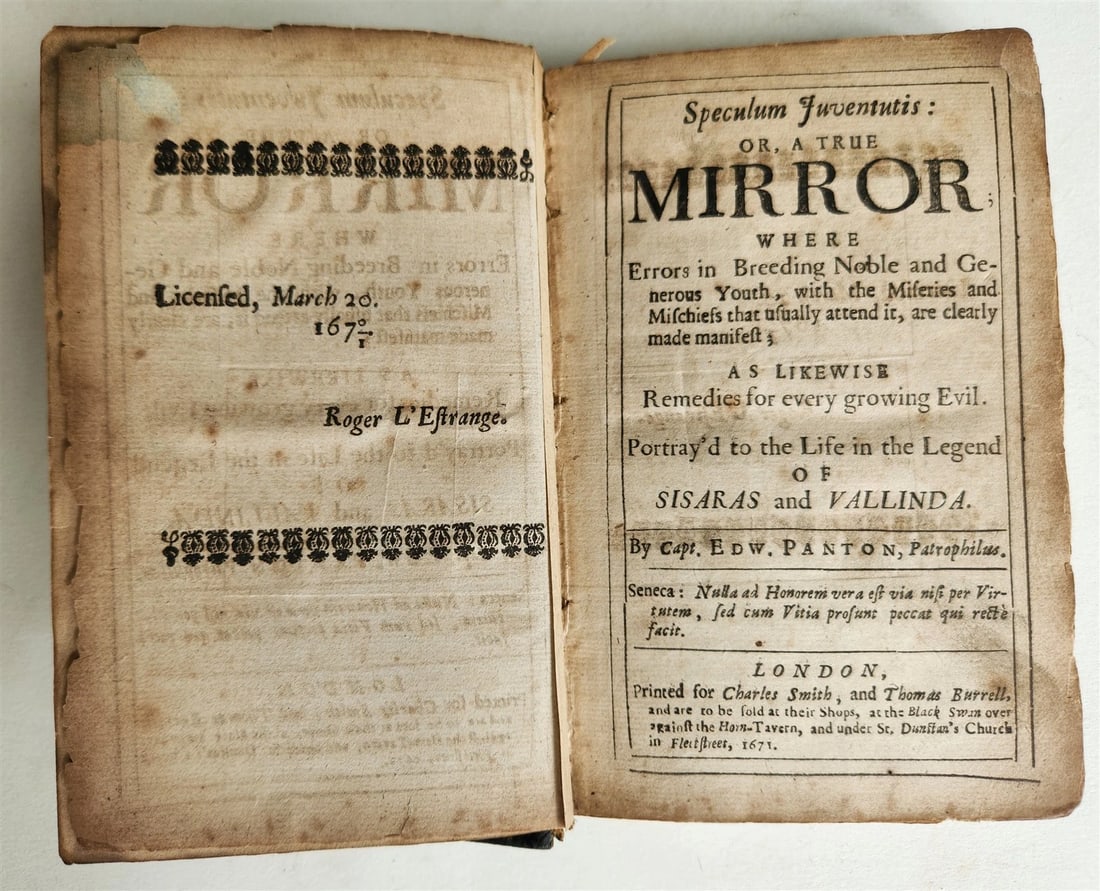 Licenſed, March 20.
167 0/1.
Roger L'Eſtrange.
Speculum Juventutis:
OR, A TRUE
MIRROR;
WHERE
Errors in Breeding Noble and Ge-
nerous Youth, with the Miſeries and
Miſchiefs that uſually attend it, are clearly
made manifeſt;
AS LIKEWISE
Remedies for every growing Evil.
Portray'd to the Life in the Legend
OF
SISARAS and VALLINDA.
By Capt. EDW. PANTON, Patrophilus.
Seneca: Nulla ad Honorem vera eſt via niſi per Vir-
tutem, ſed cum Vitia proſunt peccat qui rectè
facit.
LONDON,
Printed for Charles Smith, and Thomas Burrell,
and are to be ſold at their Shops, at the Black Swan over
againſt the Horn-Tavern, and under St. Dunſtan's Church
in Fleetſtreet, 1671.